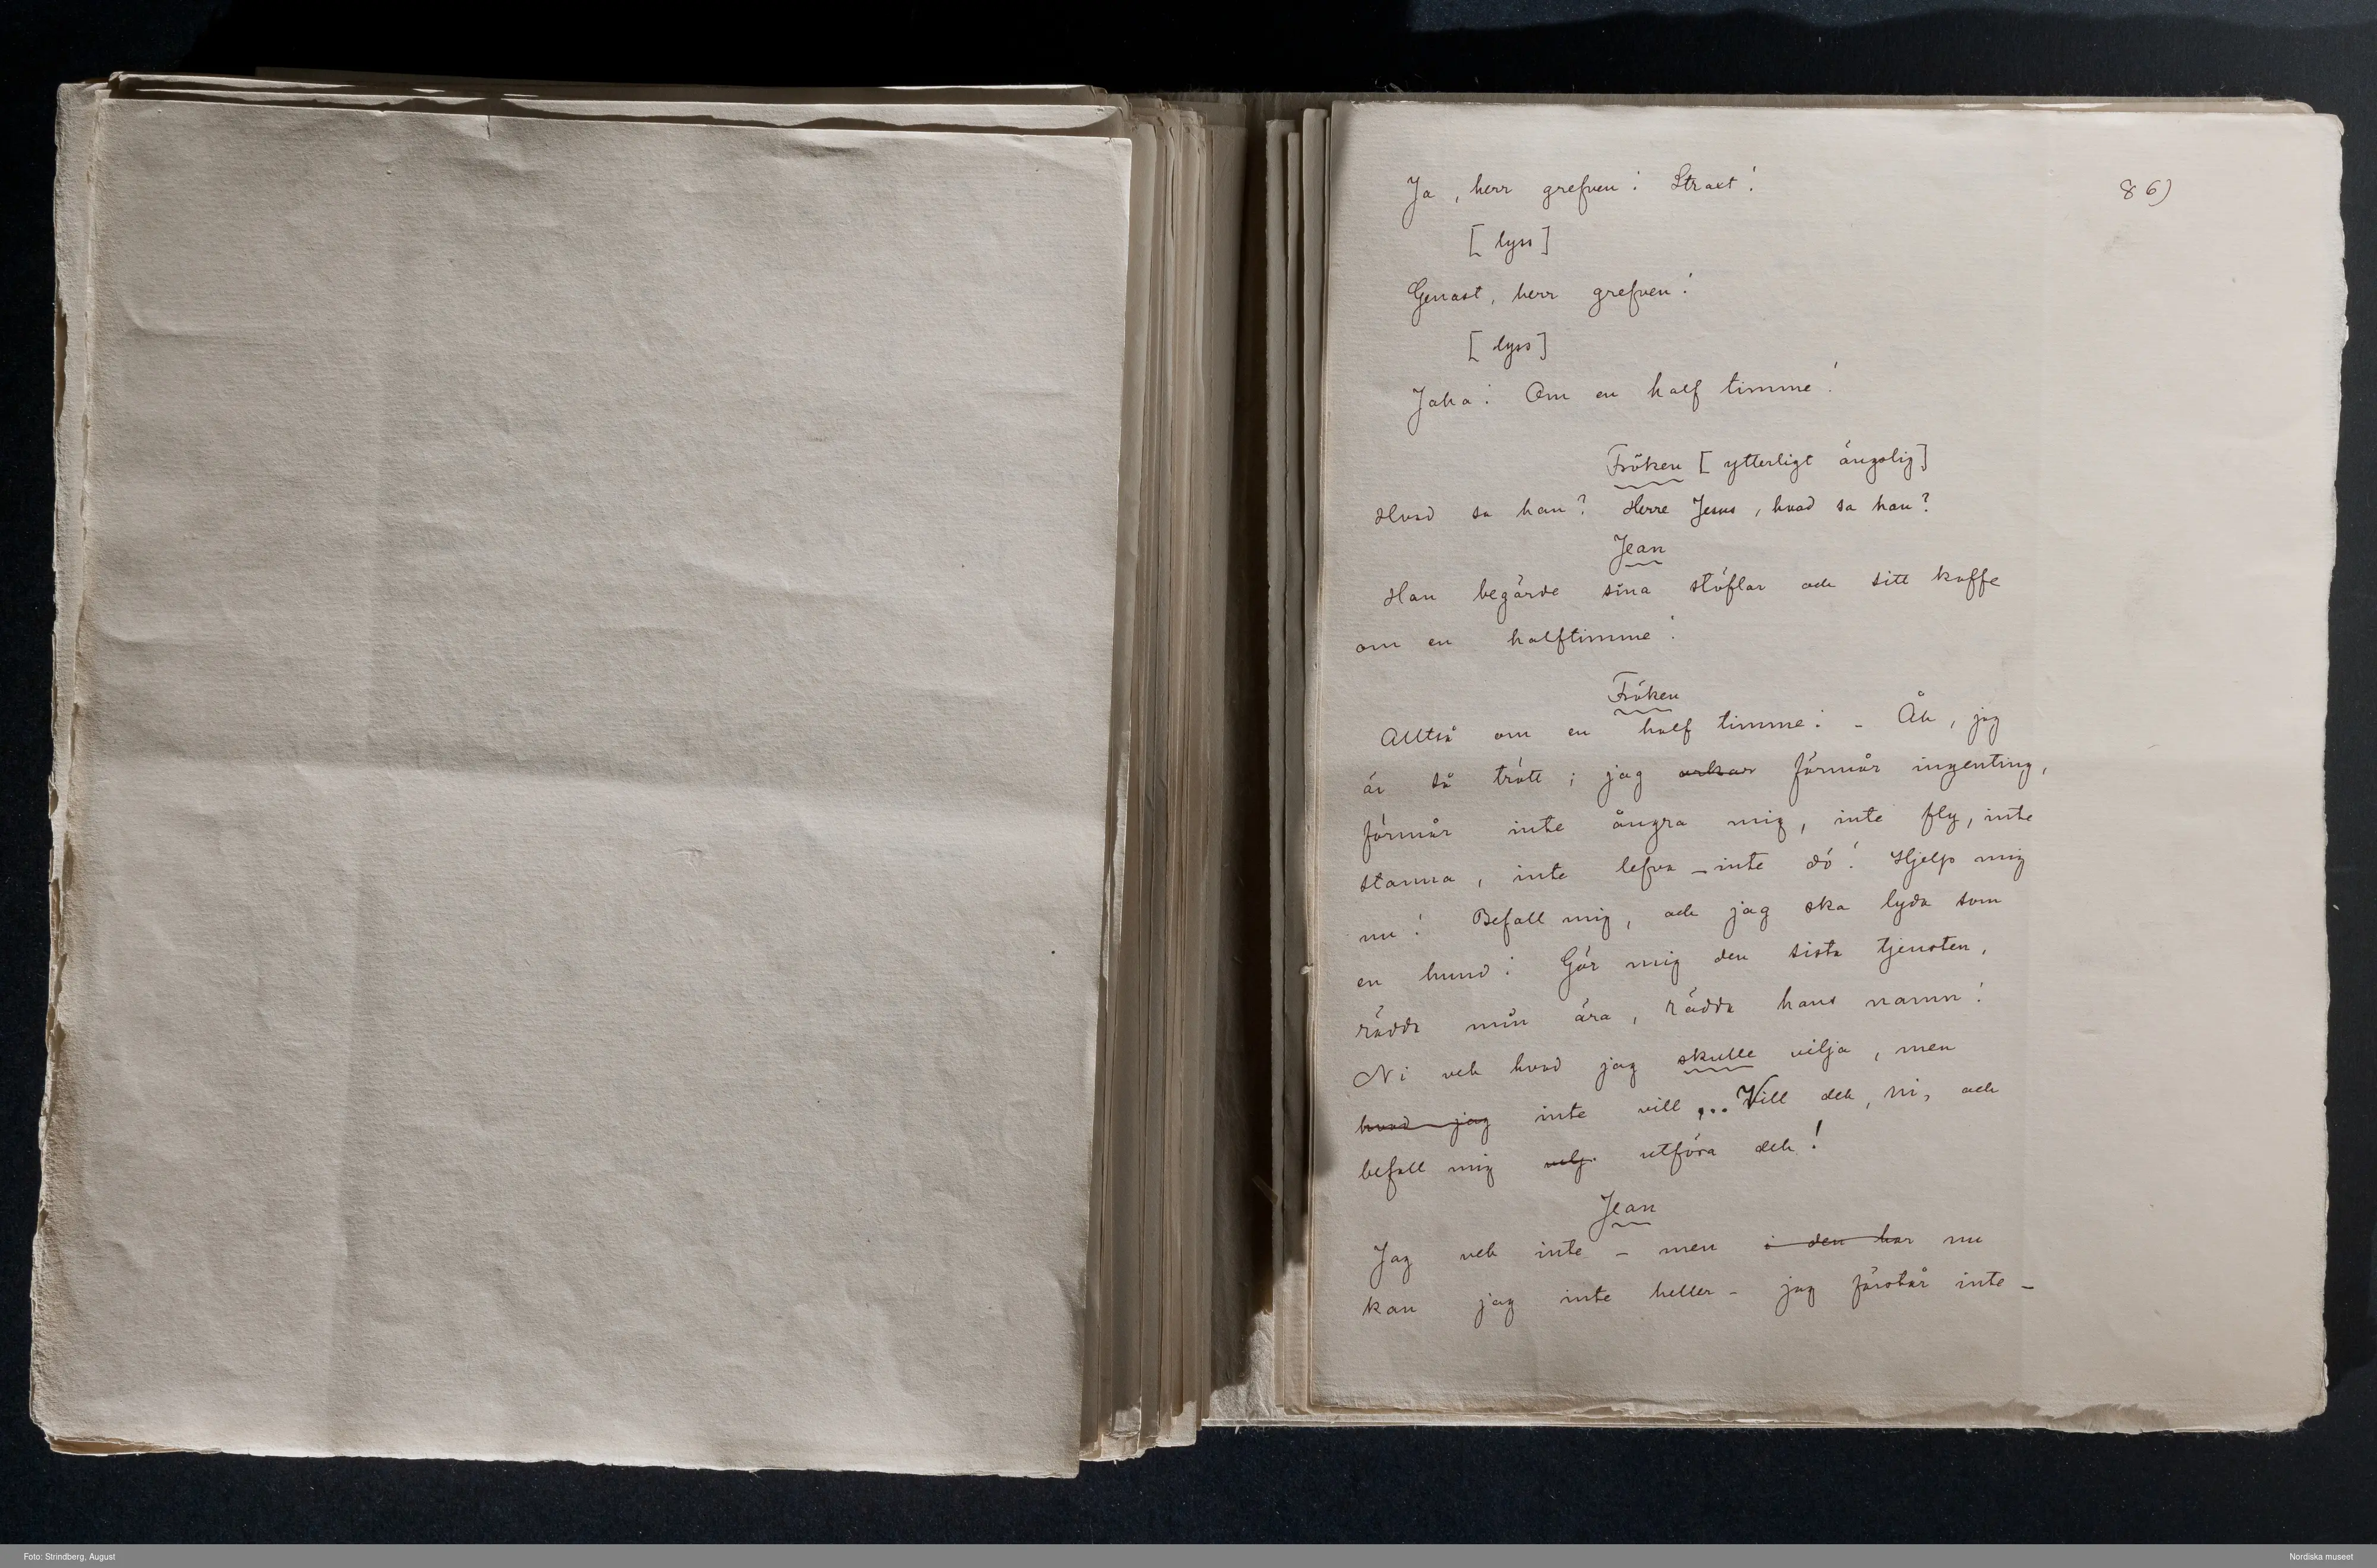 86)
Ja, herr grefven! Straxt!
[lyss]
Genast, herr grefven!
[lyss]
Jaha! Om en half timme!
Fröken [ytterligt ängslig]
Hvad sa han? Herre Jesus, hvad sa han?
Jean
Han begärde sina stöflar och sitt kaffe
om en halftimme!
Fröken
Alltså om en half timme! - Åh, jag
är så trött; jag orkar förmår ingenting,
förmår inte ångra mig, inte fly, inte
stanna, inte lefva - inte dö! Hjelp mig
nu! Befall mig, och jag ska lyda som
en hund! Gör mig den sista tjensten,
rädda min ära, rädda hans namn!
Ni vet hvad jag skulle vilja, men
hvad jag inte vill ... Vill det, ni, och
befall mig utföra det!
Jean
Jag vet inte - men i den här nu
kan jag inte heller - jag förstår inte -
Foto: Strindberg, August
Nordiska museet